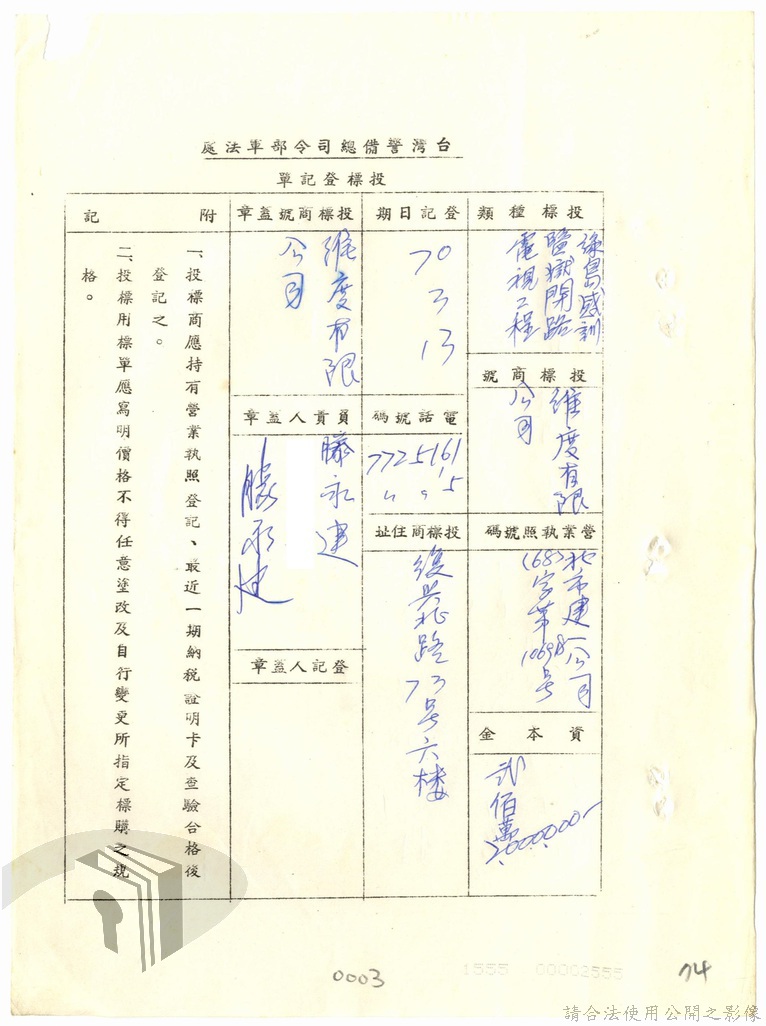 台灣警備總司令部軍法處
投標登記單
投標種類
綠島感訓
監獄閉路
電視工程
投標商號
維度有限
公司
營業執照號碼
北市建一公司
(68)字第
號
資本金
貳佰萬
2,000,000-
登記日期
70
3
13
電話號碼
7725161
投標商住址
復興北路73号六楼
投標商號蓋章
維度有限
公司
負責人蓋章
滕永建
滕永建
登記人蓋章
附記
一、投標商應持有營業執照登記、最近一期納稅證明卡及查驗合格後
登記之。
二、投標用標單應寫明價格不得任意塗改及自行變更所指定標購之規
格。
0003
1555 00002555
74
請合法使用公開之影像